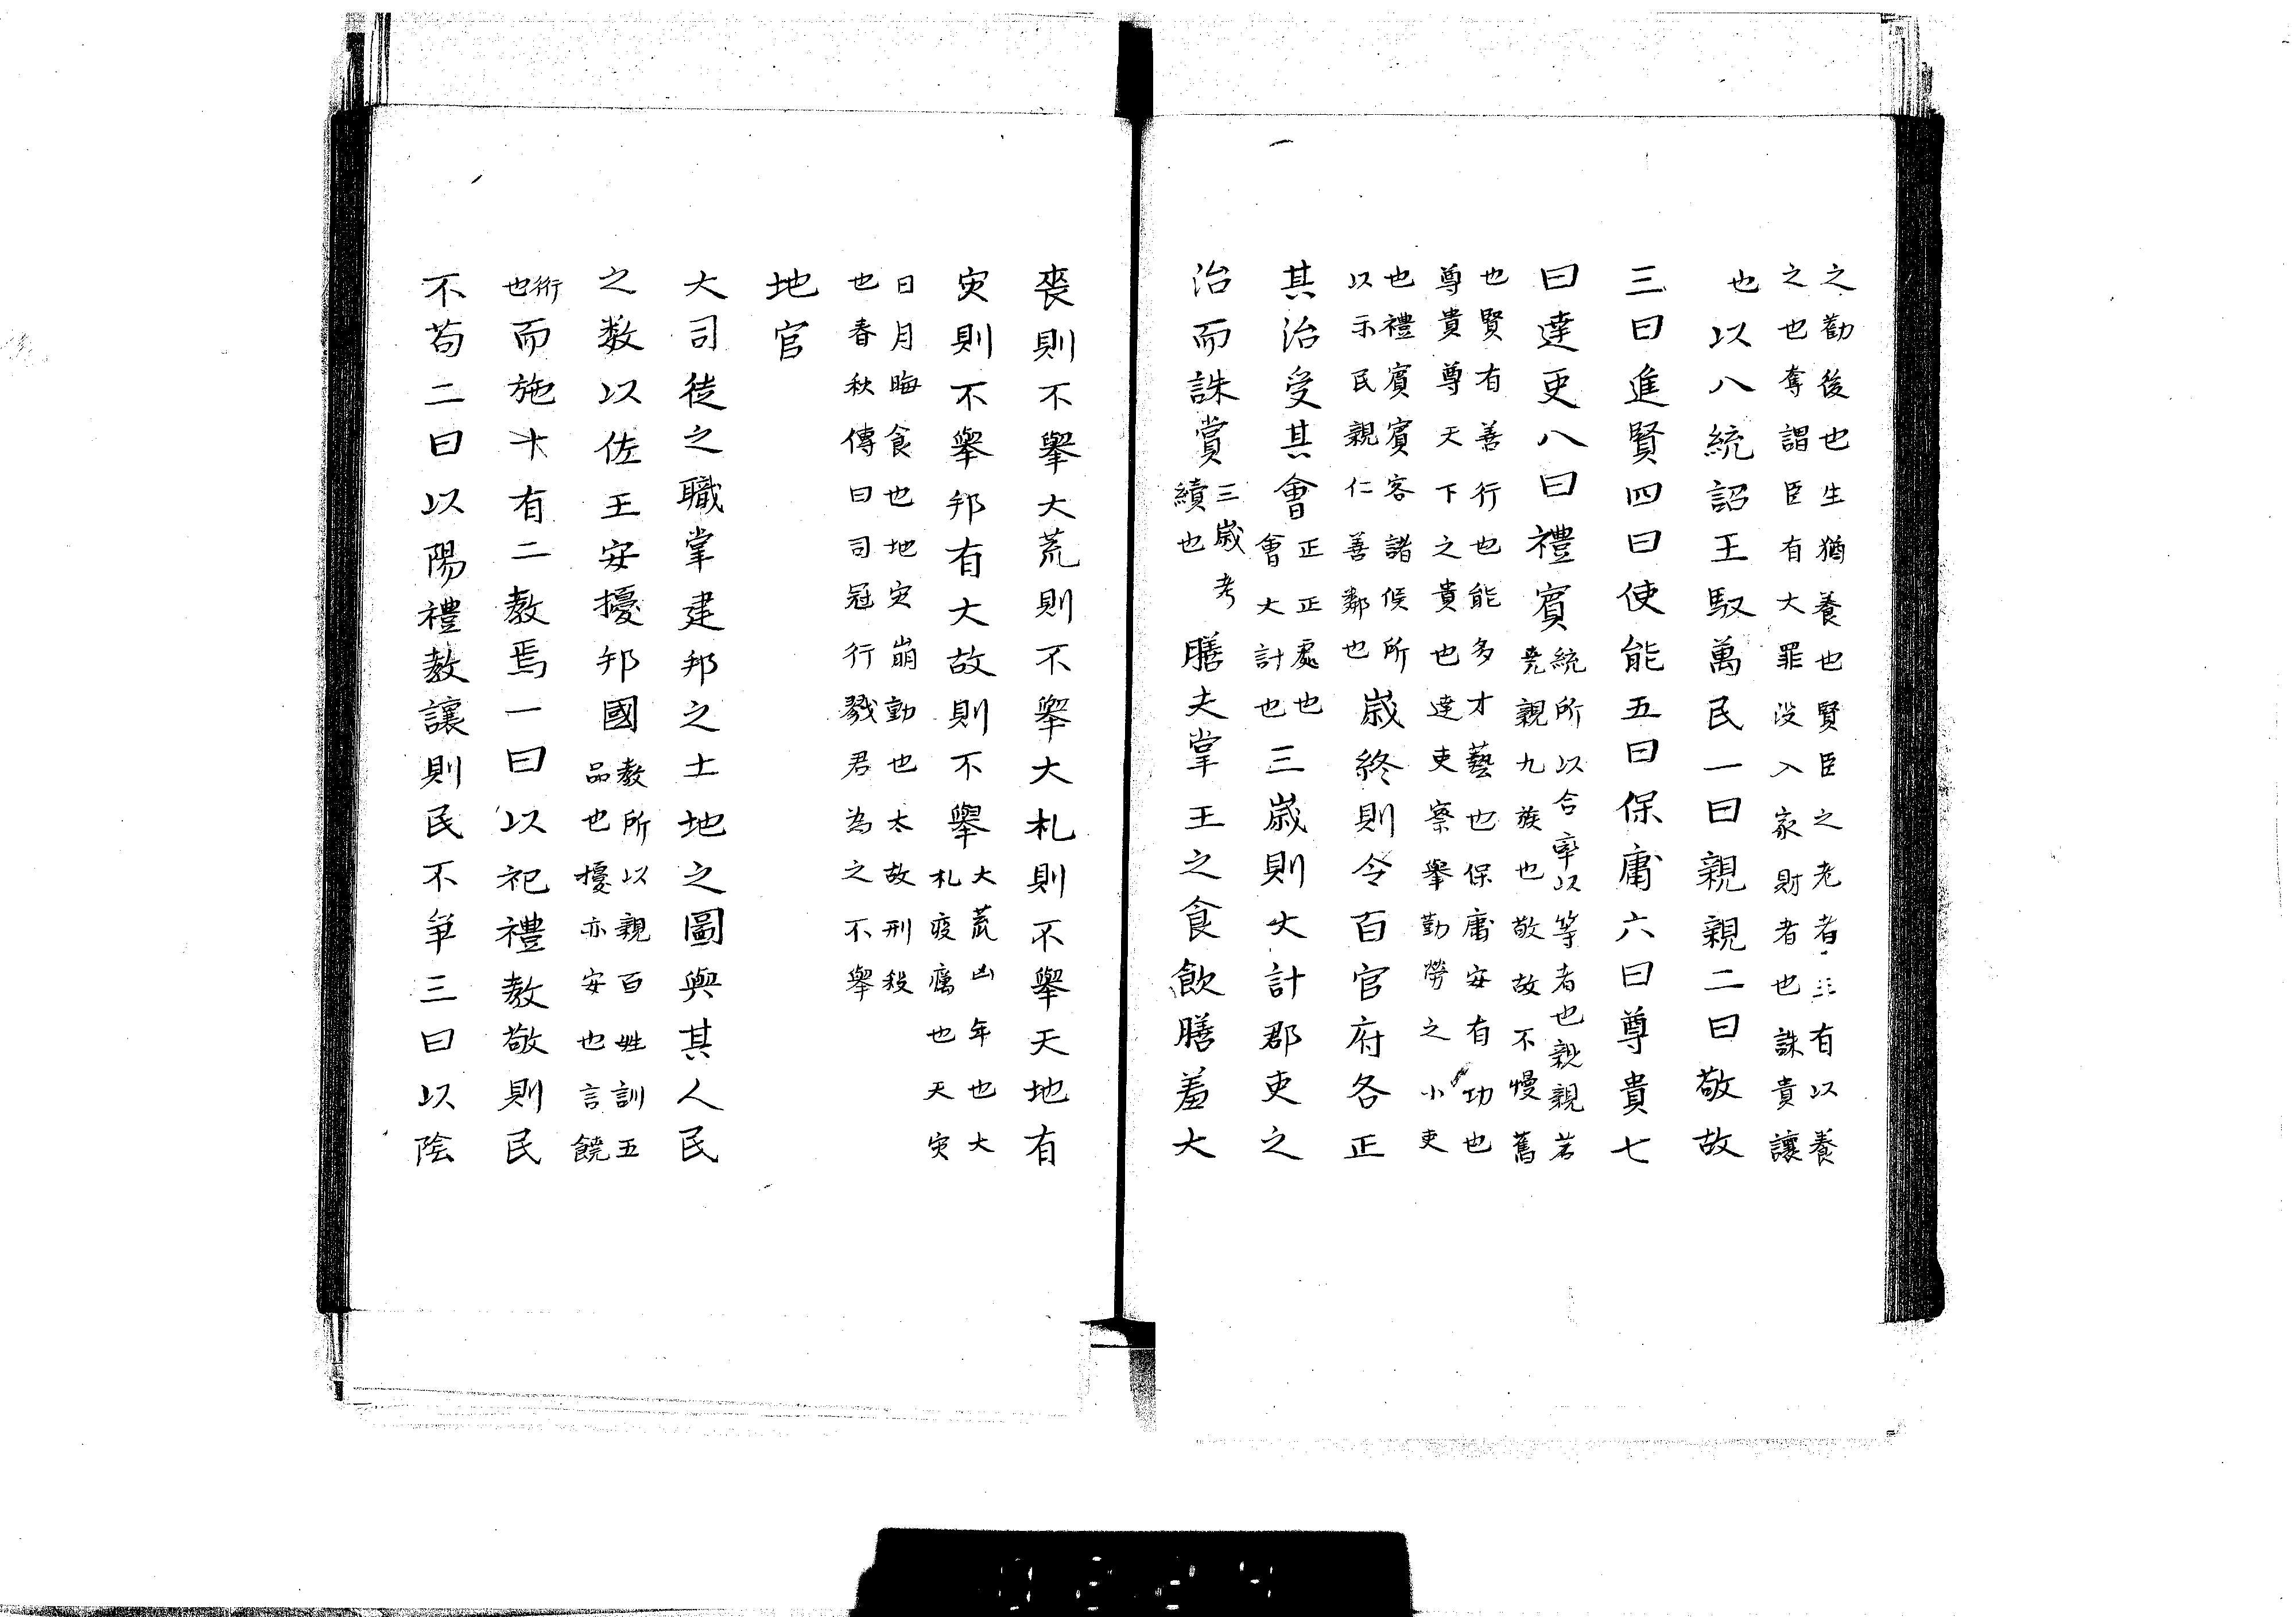 之勸後也生猶養也賢臣之老者王有以養
之也奪謂臣有大罪没入家財者也誅責讓
也以八統詔王馭萬民一曰親親二曰敬故
三曰進賢四曰使能五曰保庸六曰尊貴七
曰達吏八曰禮賓統所以合牽以等者也親親若
堯親九族也敬故不慢舊
也賢有善行也能多才藝也保庸安有功也
尊貴尊天下之貴也達吏察舉勤勞之小吏
也禮賓賓客諸侯所
以示民親仁善鄰也歲終則令百官府各正
其治受其會正正處也
會大計也三歲則大計郡吏之
治而誅賞三歲考
績也膳夫掌王之食飲膳羞大
喪則不舉大荒則不舉大札則不舉天地有
灾則不舉邦有大故則不舉大荒凶年也大
札疫癘也天灾
日月晦食也地灾崩動也太故刑殺
也春秋傳曰司冠行戮君為之不舉
地官
大司徒之職掌建邦之土地之圖與其人民
之數以佐王安擾邦國教所以親百姓訓五
品也擾亦安也言饒
衍
也而施十有二教焉一曰以祀禮教敬則民
不苟二曰以陽禮教讓則民不爭三曰以陰